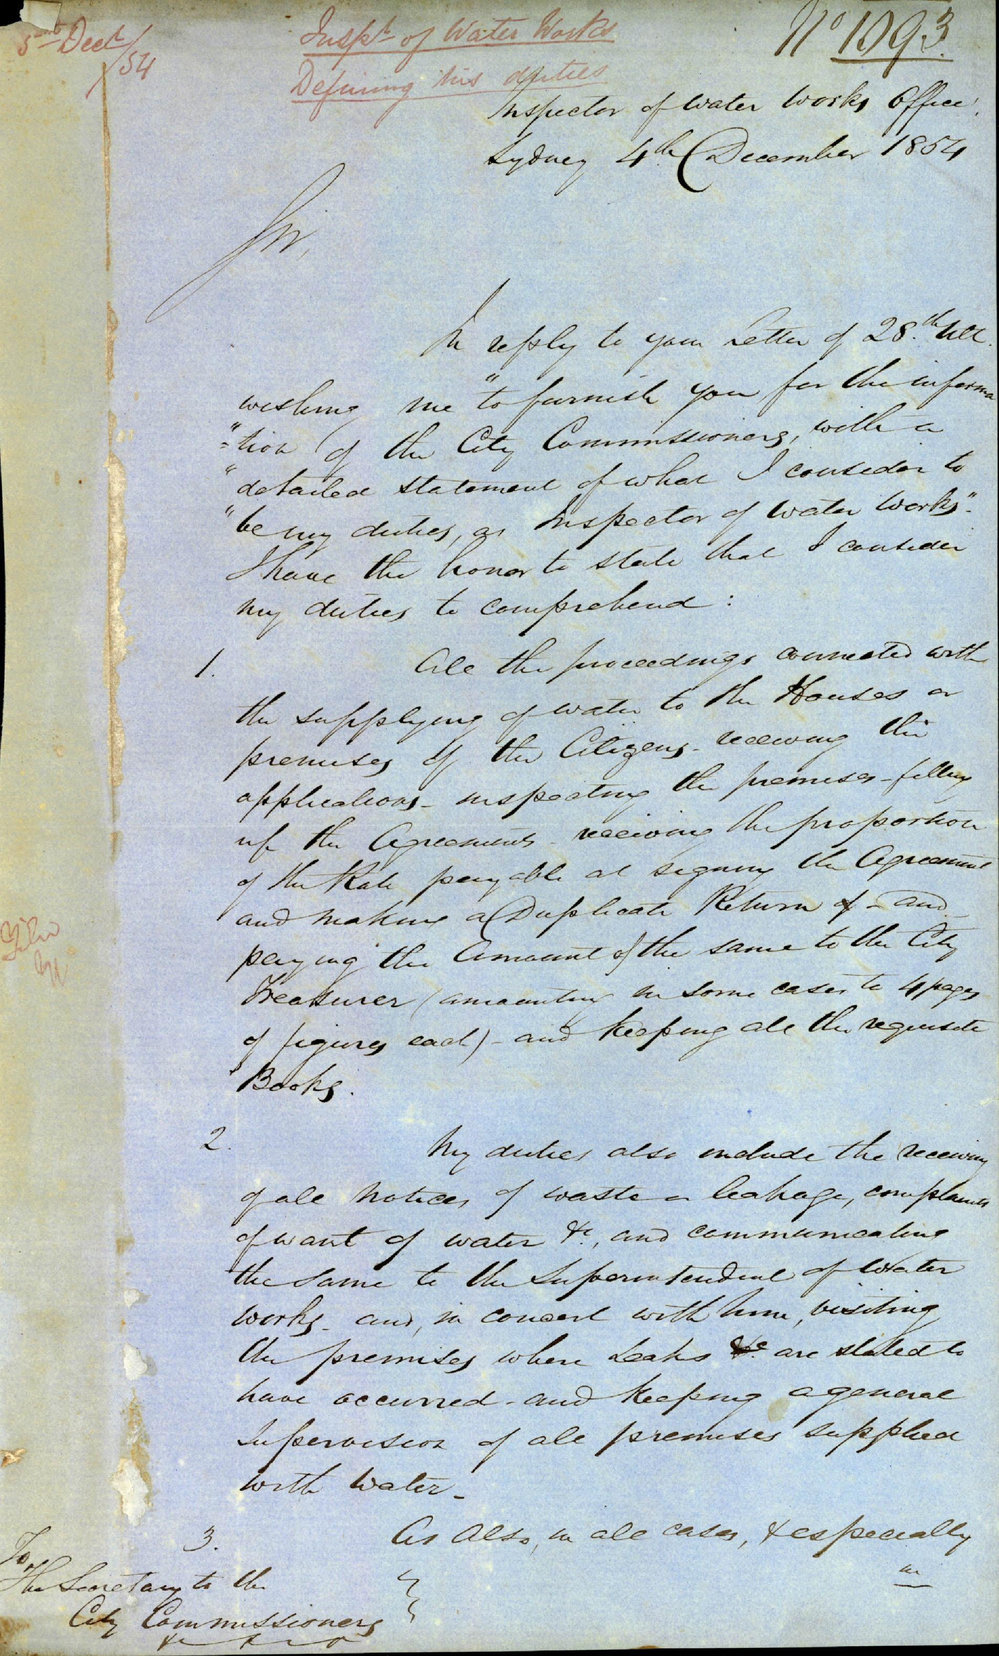 5th Decr /54
Inspr of Water Works
Defining his duties
No 1093
Inspector of Water Works Office
Sydney 4th December 1854
Sir,
In reply to your Letter of 28.th Ult.
wishing me "to furnish you for the informa
"tion of the City Commissioners, with a
"detailed statement of what I consider to
"be my duties, as Inspector of Water Works".
I have the honor to state that I consider
my duties to comprehend:
1. All the proceedings connected with
the supplying of water to the Houses or
premises of the Citizens - receiving the
applications - inspecting the premises - filling
up the Agreements - receiving the proportion
of the Rate payable at signing the Agreement
and making a Duplicate Return of - and
paying the Amount of the same to the City
Treasurer (amounting in some cases to 4 pages
of figures each) - and keeping all the requisite
Books.
2. My duties also include the receiving
of all Notices of waste or leakage, complaints
of want of water &c., and communicating
the same to the Superintendent of Water
Works - and, in concert with him, visiting
the premises where Leaks &c are stated to
have occurred - and keeping a general
Supervision of all premises supplied
with Water -
3. As Also, in all cases, & especially
in
To
The Secretary to the
City Commissioners
&c &c &c